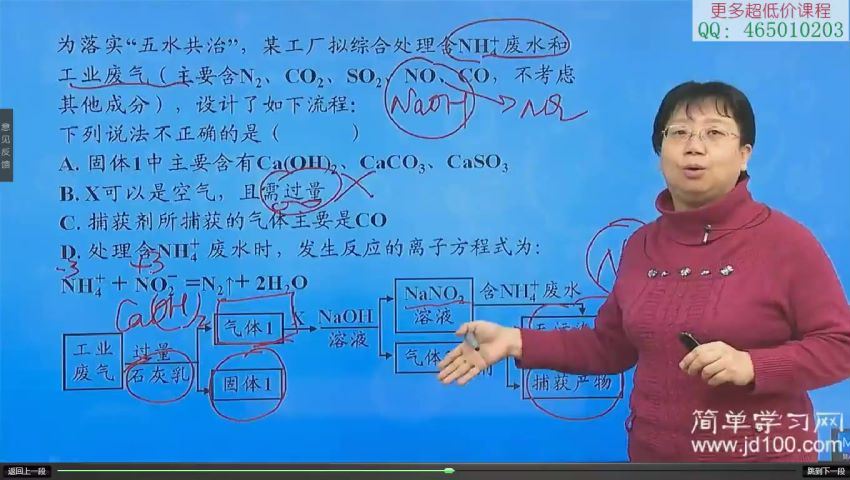 更多超低价课程
QQ: 465010203
为落实“五水共治”，某工厂拟综合处理含NH₄⁺废水和
工业废气（主要含N₂、CO₂、SO₂、NO、CO，不考虑
其他成分），设计了如下流程：
NaOH
下列说法不正确的是（ ）
A. 固体1中主要含有Ca(OH)₂、CaCO₃、CaSO₃
B. X可以是空气，且需过量
C. 捕获剂所捕获的气体主要是CO
D. 处理含NH₄⁺废水时，发生反应的离子方程式为:
-3 +3
NH₄⁺ + NO₂⁻ =N₂↑+ 2H₂O
Ca(OH)₂
工业
废气
过量
石灰乳
气体1
固体1
X
NaOH
溶液
NaNO₂
溶液
含NH₄⁺废水
气体
捕获产物
意见反馈
简单学习网
www.jd100.com
返回上一段
跳到下一段